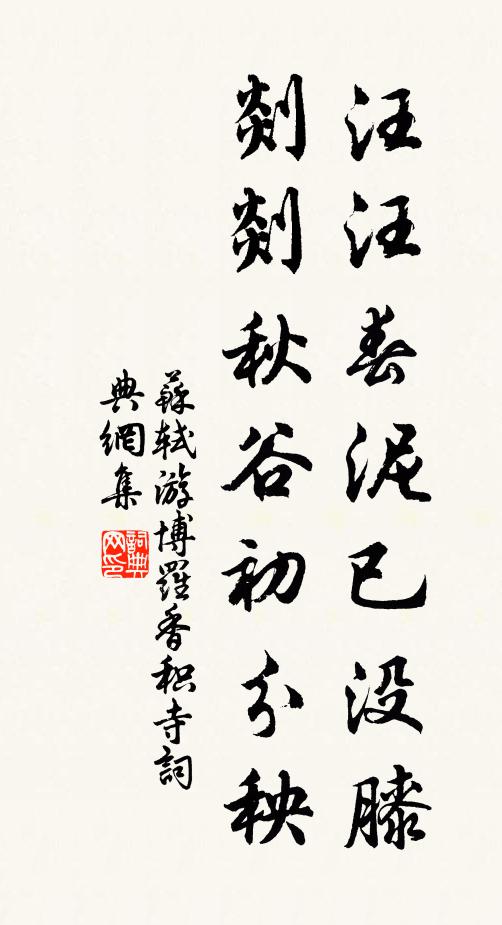 汪汪春泥已没膝
剡剡秋谷初分秧
蘇軾游博羅香积寺詞
典網集
詞典网印